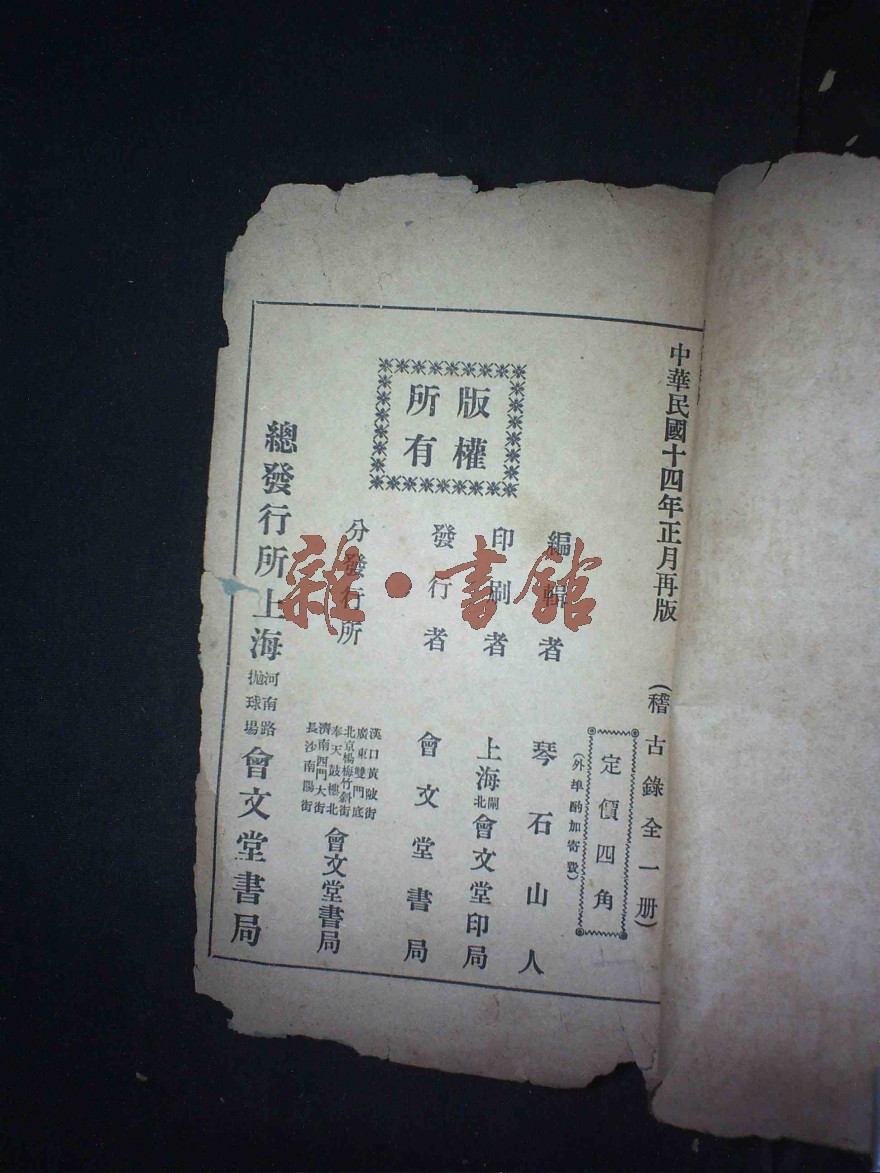 中華民國十四年正月再版
(稽古錄全一册)
定價四角
(外埠酌加寄費)
編輯者 琴石山人
印刷者 上海閘北會文堂印局
發行者 會文堂書局
版權
所有
分發行所
漢口黃陂街
廣東雙門底
北京楊梅竹斜街
奉天鼓樓北
濟南西門大街
長沙南陽街
會文堂書局
總發行所上海
河南路
拋球場
會文堂書局
雜·書館